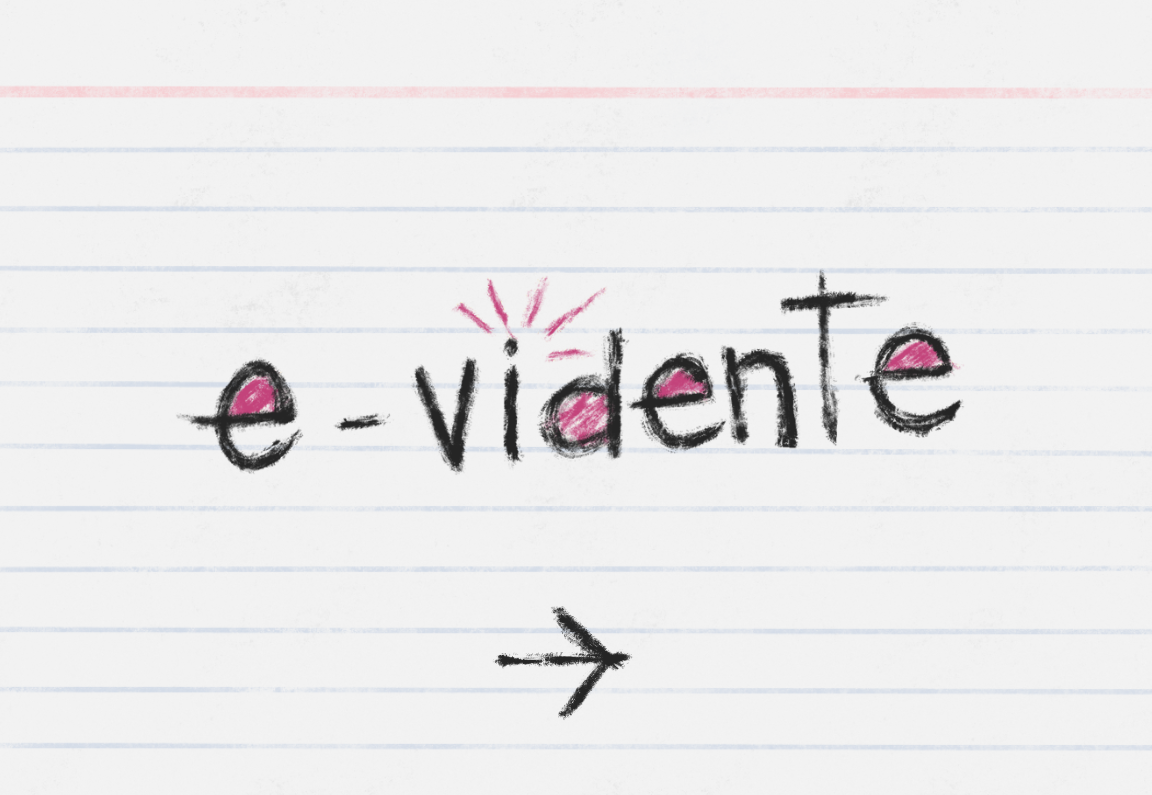 e-vidente
→